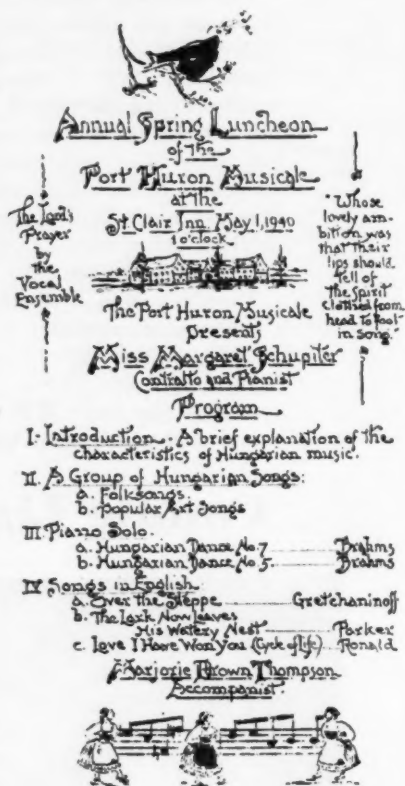 Annual Spring Luncheon
of the
Port Huron Musicale
at the
St. Clair Inn May 1, 1940
1 o'clock
The Lord's
Prayer
by
the
Vocal
Ensemble
"Whose
lovely am-
bition was
that their
lips should
tell of
the spirit
clothed from
head to foot
in song."
The Port Huron Musicale
Presents
Miss Margaret Schupiter
Contralto and Pianist
Program
I:- Introduction - A brief explanation of the
characteristics of Hungarian music.
II. A Group of Hungarian Songs:
a. Folksongs.
b. Popular Art Songs
III. Piano Solo.
a. Hungarian Dance No. 7 Brahms
b. Hungarian Dance No. 5 Brahms
IV Songs in English.
a. Over the Steppe Gretchaninoff
b. The Lark Now Leaves
His Watery Nest Parker
c. Love I Have Won You (Cycle of Life) Ronald
Marjorie Brown Thompson
Accompanist.